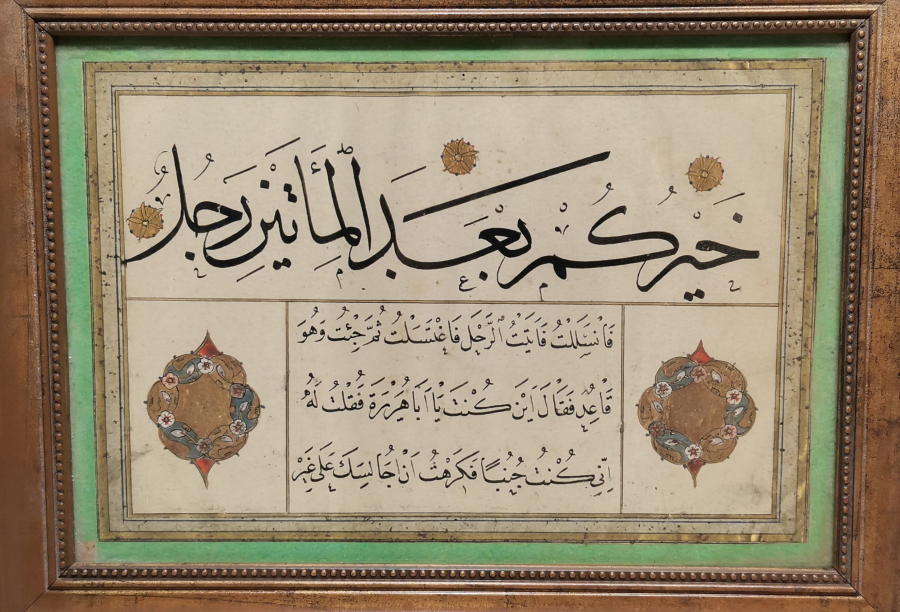 خَيْرُكُمْ بَعْدَ الْمَأَتَيْنِ رَجُلٌ
فَانْسَلَلْتُ فَاَتَيْتُ الرَّحْلَ فَاغْتَسَلْتُ ثُمَّ جِئْتُ وَهُوَ
قَاعِدٌ فَقَالَ اَيْنَ كُنْتَ يَا اَبَا هُرَيْرَةَ فَقُلْتُ لَهُ
اِنِّي كُنْتُ جُنُبًا فَكَرِهْتُ اَنْ اُجَالِسَكَ عَلَى غَيْرِ